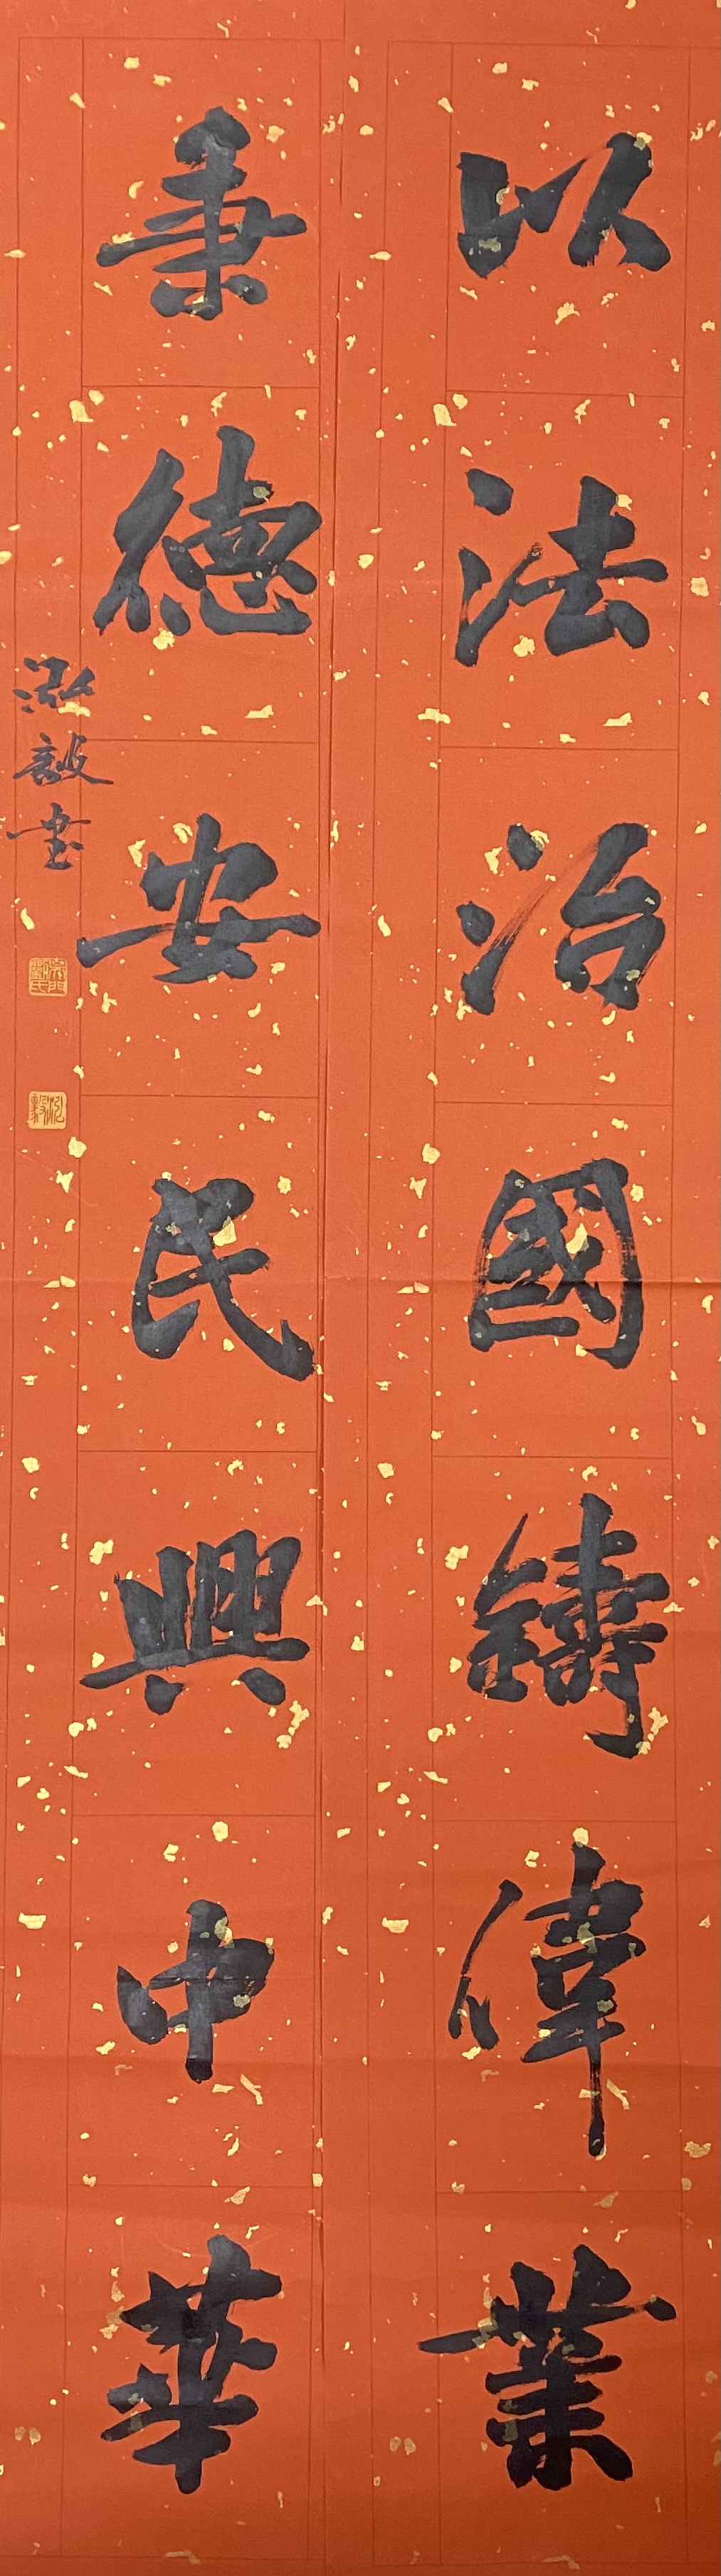 以法治國鑄偉業
秉德安民興中華
泓毅書